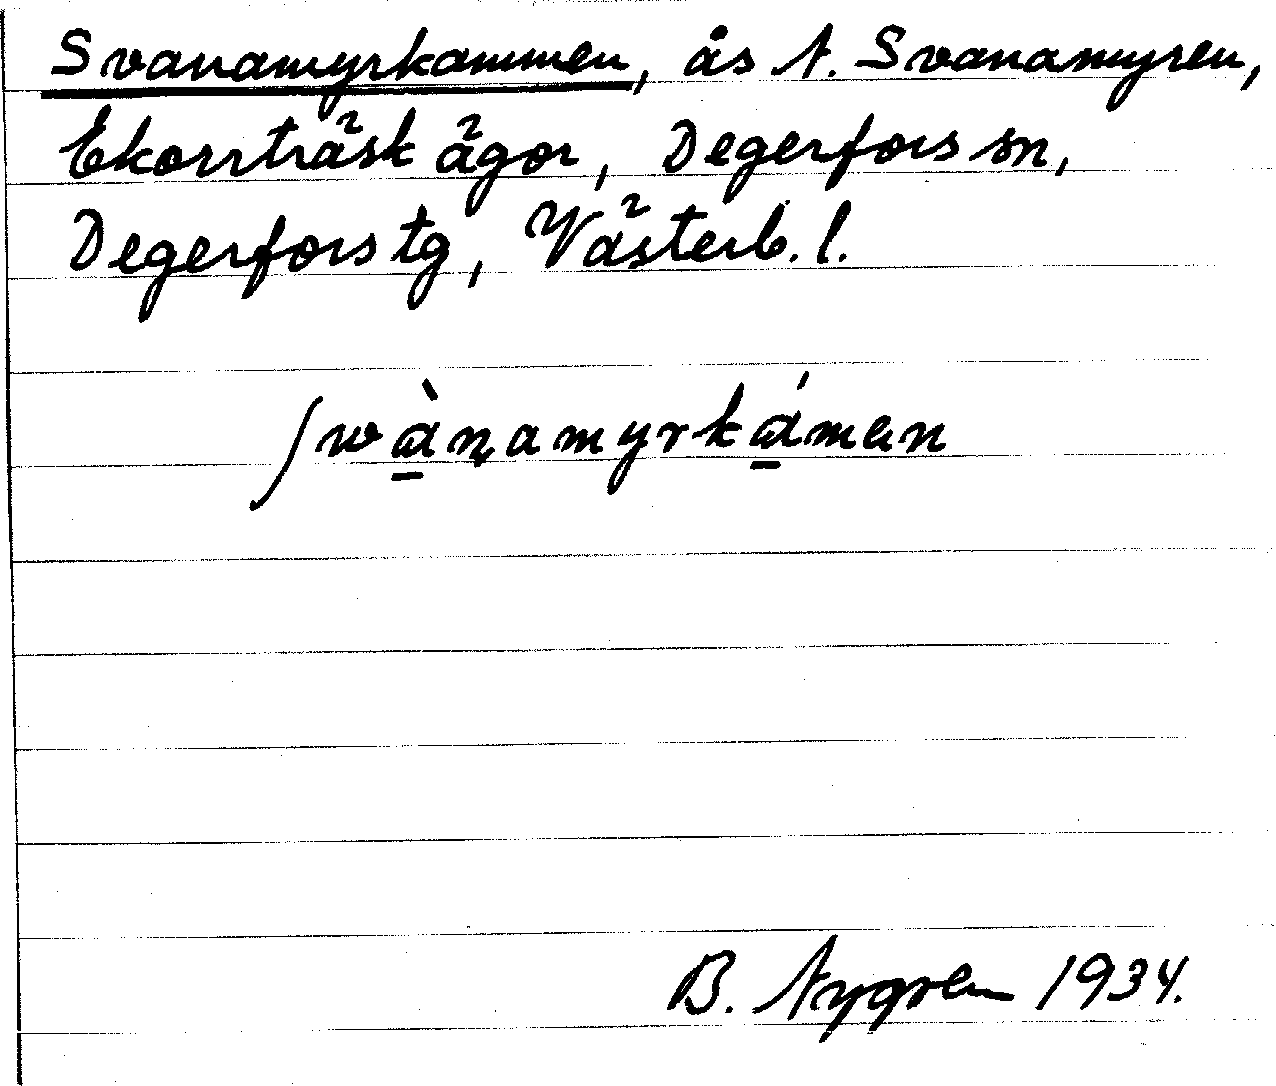 Svanamyrkammen, ås N. Svanamyren,
Ekorrträsk ägor, Degerfors sn,
Degerfors tg, Västerb. l.
ʃwὰṇamyrkάmen
B. Nygren 1934.